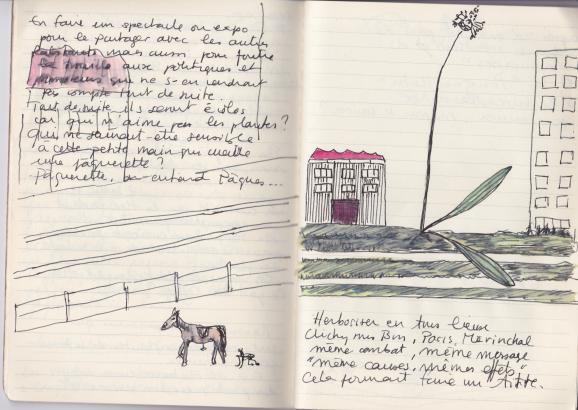 En faire un spectacle ou expo
pour le partager avec les autres
habitants mais aussi pour foutre
la trouille aux politiques et
qui ne s'en rendront
pas compte tout de suite.
Tout de suite ils seront
car qui n'aime pas les plantes?
Qui ne saurait être sensible
à cette petite main qui cueille
une pâquerette?
Pâquerette, on entend Pâques...
Herboriser en tous lieux
Clichy sous Bois, Paris,
même combat, même message
"même causes, mêmes effets"
Cela pourrait faire un titre.